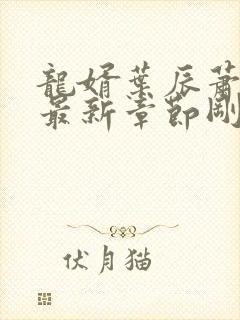 龍婿葉辰蕭
最新章節剛
伏月猫